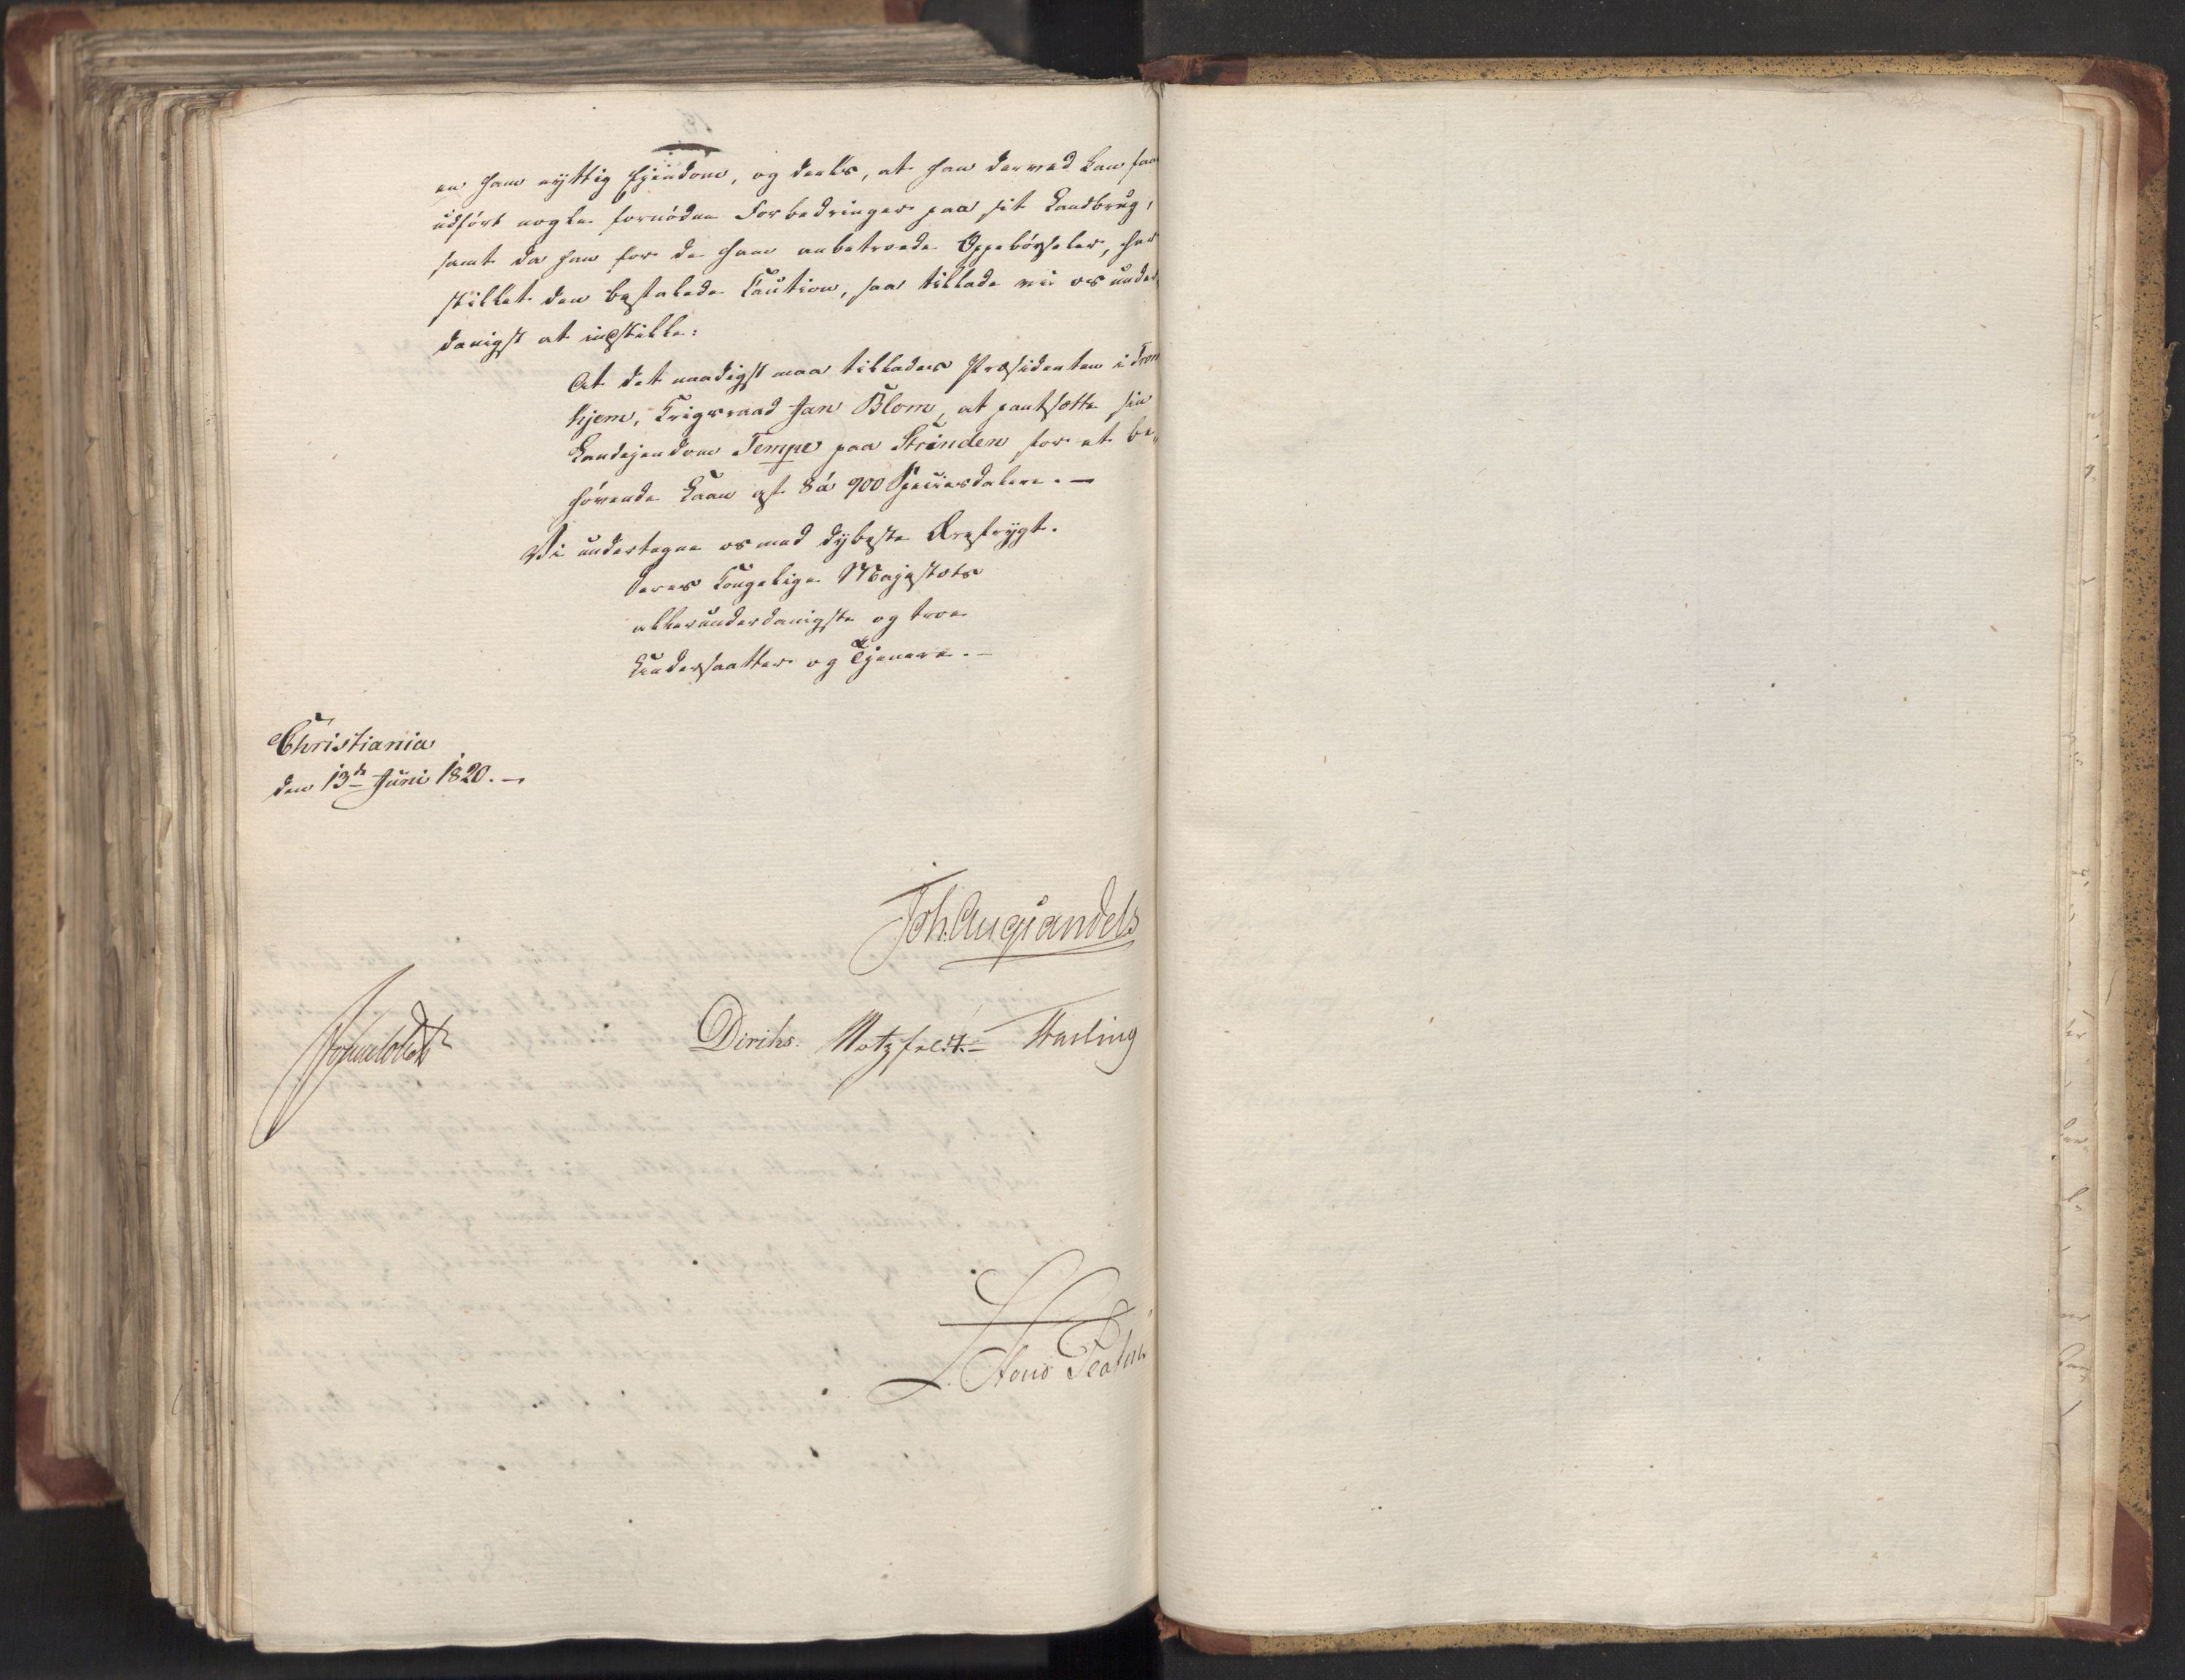 en ham nyttig Ejendom, og deels, at han derved kan faae
udført nogle fornødne Forbedringer paa sit Landbrug,
samt da han for de ham anbetroede Oppebørseler, har
stillet den befalede Caution, saa tillade vi os under,,
danigst at indstille:
At det naadigst maa tillades Præsidenten i Tron
hjem, Krigsraad Jan Blom, at pantsætte sin
Landejendom Tempe paa Strinden for et be,,
høvende Laan af 8 á 900 Speciesdalere. —
Vi undertegne os med dybeste Ærefrygt.
Deres Kongelige Majestæts
allerunderdanigste og troe
Undersaatter og Tjenere. —
Christiania
den 13de Juni 1820. —
Joh. Aug Sandels
Sommerhielm
Diriks. Motzfeldt. Fasting